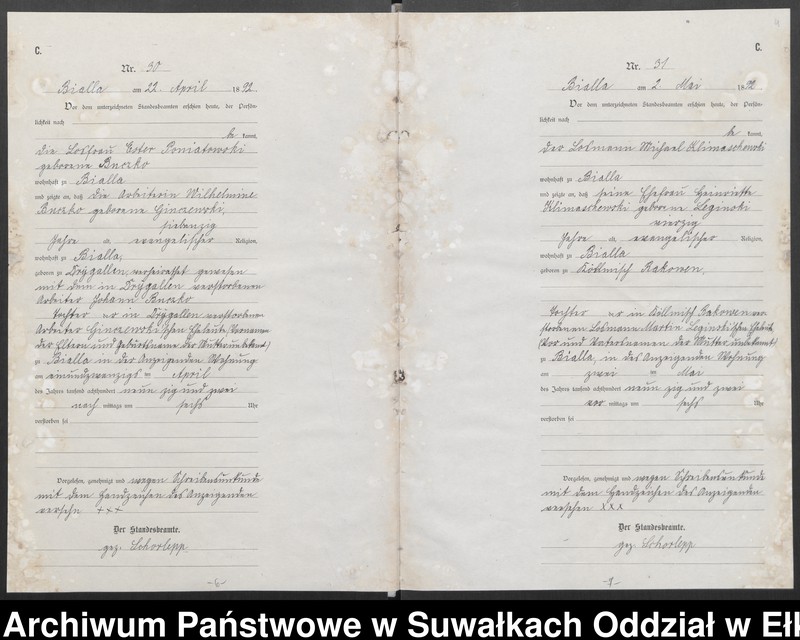 C.
Nr. 30
Bialla am 22. April 1892.
Vor dem unterzeichneten Standesbeamten erschien heute, der Persön-
lichkeit nach
be kannt,
die Losfrau Ester Poniatowski
geborene Buczko
wohnhaft zu Bialla
und zeigte an, daß die Arbeiterin Wilhelmine
Buczko geborene Ginczewski,
siebenzig
Jahre a, evangelischer Religion,
wohnhaft zu Bialla,
geboren zu Drygallen, verheirathet gewesen
mit dem in Drygallen verstorbenen
Arbeiter Johann Buczko
Tochter er in Drygallen verstorbenen
Arbeiter Ginczewski'schen Eheleute Vornamen
der Eltern und Geburtsname der Mutter unbekannt)
zu Bialla in der Anzeigenden Wohnung
am einundzwanzigsten April
des Jahres tausend achthundert neunzig und zwei
nach mittags um sechs Uhr
verstorben sei
Vorgelesen, genehmigt und wegen Schreibensunkunde
mit dem Handzeichen des Anzeigenden
versehn +++
Der Standesbeamte.
gez. Schorlepp
-6-
C.
Nr. 31
Bialla am 2 Mai 1892
Vor dem unterzeichneten Standesbeamten erschien heute, der Persön-
lichkeit nach
be kannt,
der Losmann Michael Klimaschewski
wohnhaft zu Bialla
und zeigte an, daß seine Ehefrau Heinriette
Klimaschewski geborene Leginski
vierzig
Jahre a, evangelischer Religion,
wohnhaft zu Bialla
geboren zu Köllmisch Rakowen,
Tochter er in Köllmisch Rakowen ver-
storbenen Losmann Martin Leginski'schen Eheleute
(Vor und Vatersnamen der Mutter unbekannt)
zu Bialla, in des Anzeigenden Wohnung
am zwei Mai
des Jahres tausend achthundert neunzig und zwei
vor mittags um sechs Uhr
verstorben sei
Vorgelesen, genehmigt und wegen Schreibensunkunde
mit dem Handzeichen des Anzeigenden
versehen XXX
Der Standesbeamte.
gez. Schorlepp
-7-
Archiwum Państwowe w Suwałkach Oddział w Eł